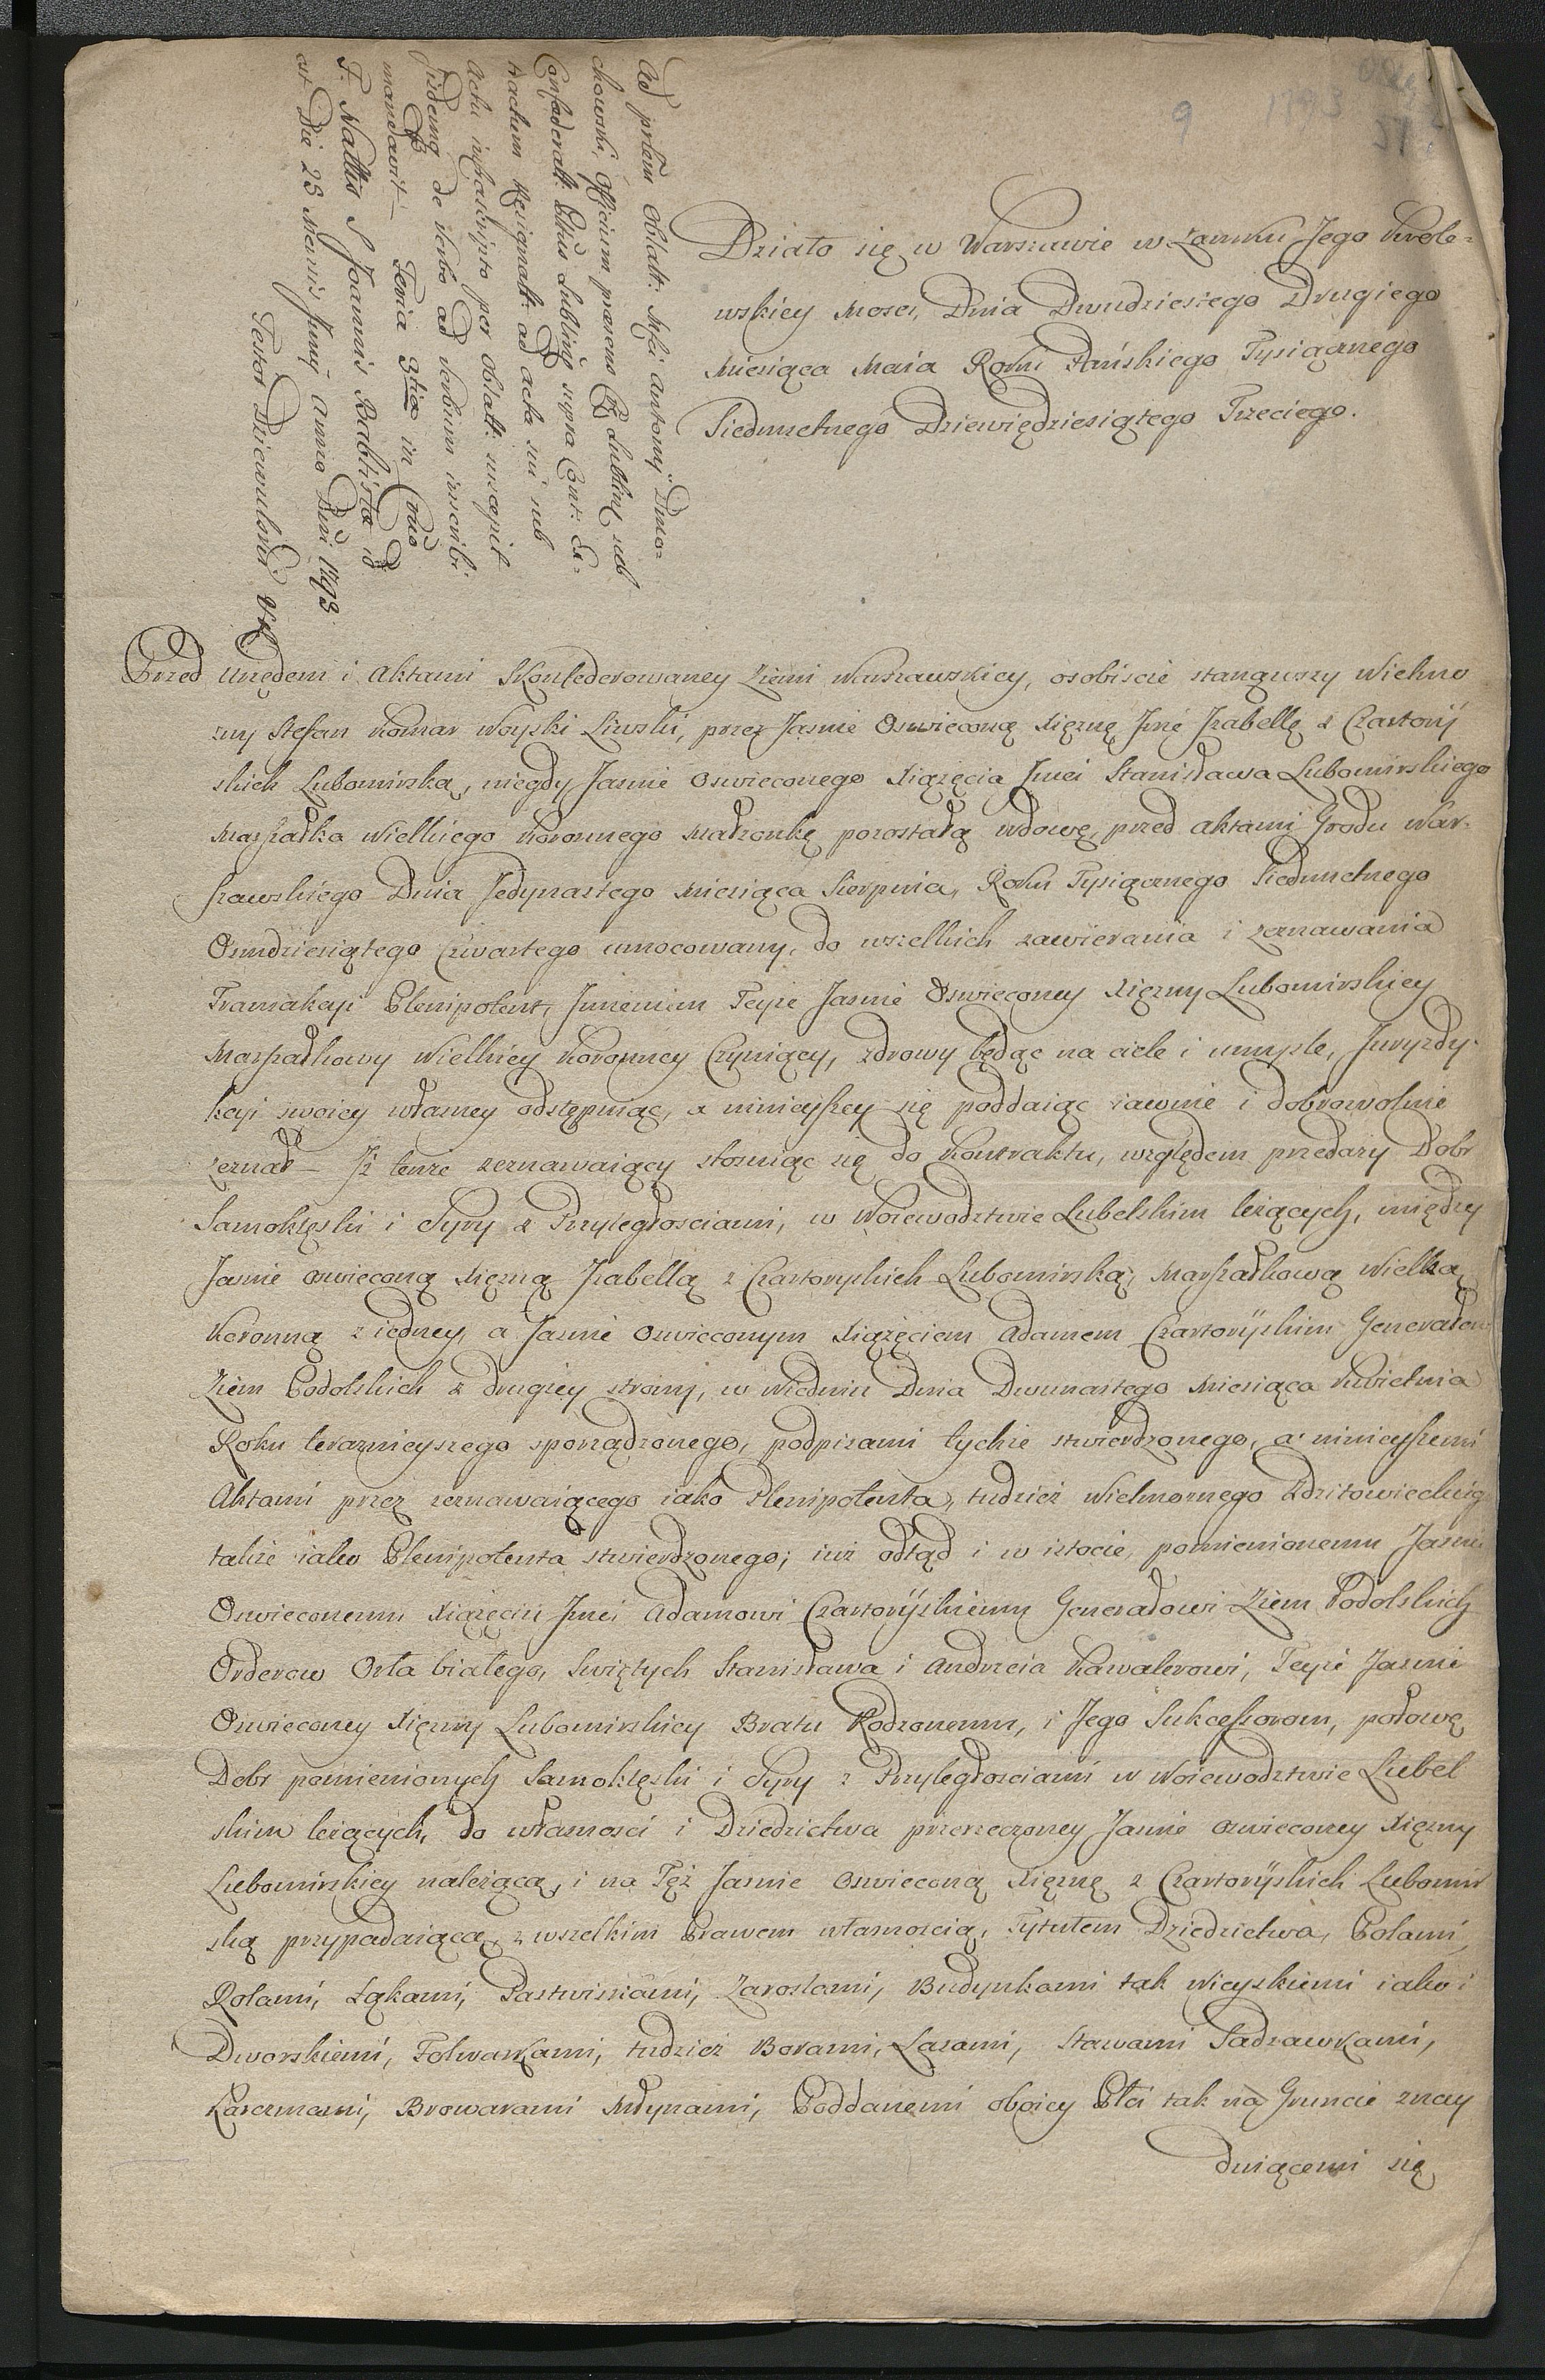 9 1793
Ad prsm Oblatt: Mgci Antonÿ Dmo=
chowski, Officium præsens Pi Lublin sub
Confæderatt: Pltus Lublinũ supra Cont:
tractum Resignatt: ad acta sui sub
Actu infrascripto per Oblatt: suscepit
jisdemq de verbo ad verbum inscribi
mandavit — Feria 3tia in Crõ
F. Nattis S Joannis Baptistæ id
est Die 23 Mensis Junÿ Anno Dni 1793.
Testor Dziewulski
Działo się w Warszawie w zamku Jego Krole=
wskiey Mosci, Dnia Dwudziestego Drugiego
Miesiąca Maia Roku Pańskiego Tysiącznego
Siedmsetnego Dziewiędziesiątego Trzeciego.
Przed urzędem i Aktami Skonfederowaney Ziemi Warszawskiey, osobiscie stanąwszy Wielmo
zny Stefan Komar Woyski Liwski, przez Jasnie Oswieconą Xięznę Jmć Izabellę z Czartorÿ
skich Lubomirską, niegdy Jasnie Oswieconego Xiązęcia Jmci Stanisława Lubomirskiego
Marszałka Wielkiego Koronnego Małzonkę pozostałą wdowę, przed Aktami Grodu War-
szawskiego Dnia Jedynastego Miesiąca Sierpnia, Roku Tysiącznego Siedmsetnego
Osmdziesiątego Czwartego umocowany, do wszelkich zawierania i zeznawania
Tranzakcyi Plenipotent, Jmieniem Teyże Jasnie Oswieconey Xięzny Lubomirskiey
Marszałkowy Wielkiey Koronney Czyniący, zdrowy będąc na ciele i umysle, Juryzdy-
kcyi swoiey własney odstępuiąc, a ninieyszey się poddaiąc iawnie i dobrowolnie
zeznał — Jż tenze zeznawaiący stosuiąc się do Kontraktu, względem przedazy Dobr
Samoklęski i Syry z Przyległosciami, w Woiewodztwie Lubelskim leżących, między
Jasnie oswieconą Xięzną Izabellą z Czartoryskich Lubomirską, Marszałkową Wielką
Koronną z iedney, a Jasnie Oswieconym Xiążęciem Adamem Czartorÿskim Generałem
Ziem Podolskich z drugiey strony, w Wiedniu Dnia Dwunastego Miesiąca Kwietnia
Roku terazniejszego sporządzonego, podpisami tychże stwierdzonego, a ninieyszemi
Aktami przez zeznawaiącego iako Plenipotenta, tudzież Wielmoznego Zdzitowieckieg
także iako Plenipotenta stwierdzonego; iuż odtąd i w istocie, pomienionemu Jasnie
Oswieconemu Xiążęciu Jmci Adamowi Czartorÿskiemu Generałowi Ziem Podolskich
Orderow Orła białego, Swiętych Stanisława i Andrzeia Kawalerowi, Teyże Jasnie
Oswieconey Xięzny Lubomirskiey Bratu Rodzonemu, i Jego Sukcessorom, połowę
Dobr pomienionych Samoklęski i Syry z Przyległosciami w Woiewodztwie Lubel
skim leżących, do własnosci i Dziedzictwa przerzeczoney Jasnie oswieconey Xięzny
Lubomirskiey należącą, i na Tęż Jasnie Oswieconą Xięznę z Czartorÿskich Lubomir
ską przypadaiącą, z wszelkim Prawem własnoscią, Tytułem Dziedzictwa, Polami,
Rolami, Łąkami, Pastwiskami, Zaroslami, Budynkami tak Wieyskiemi iako i
Dworskiemi, Folwarkami, tudzież Borami, Lasami, Stawami Sadzawkami,
Karczmami, Browarami Młynami, Poddanemi oboiey Płci tak na Gruncie znay
duiącemi się